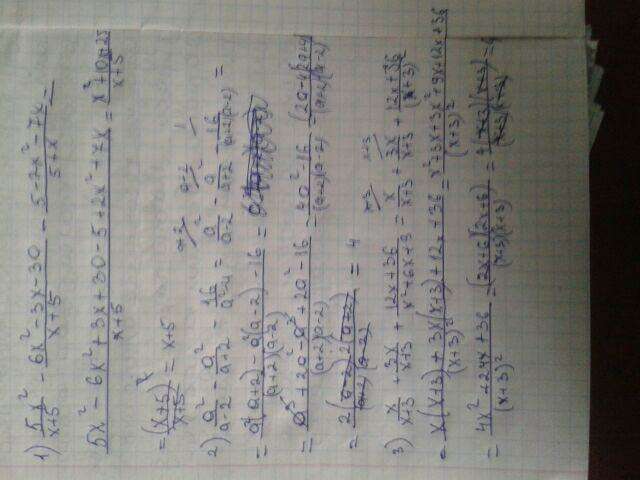 1) 5x²/(x+5) - (6x²-3x-30)/(x+5) - (5-7x²-7x)/(5+x) =
(5x²-6x²+3x+30-5+2x²+7x)/(x+5) = (x²+10x+25)/(x+5)
= (x+5)²/(x+5) = x+5
2) a²/(a-2) - a²/(a+2) - 16/(a²-4) = a²/(a-2) - a²/(a+2) - 16/((a+2)(a-2)) =
= (a²(a+2)-a²(a-2)-16)/((a+2)(a-2)) =
= (a³+2a²-a³+2a²-16)/((a+2)(a-2)) = (4a²-16)/((a-2)(a+2)) = (2a-4)(2a+4)/((a+2)(a-2))
= 2(a-2)2(a+2)/((a+2)(a-2)) = 4
3) x/(x+3) + 3x/(x+3) + (12x+36)/(x²+6x+9) = x/(x+3) + 3x/(x+3) + (12x+36)/(x+3)²
= (x(x+3)+3x(x+3)+12x+36)/(x+3)² = (x²+3x+3x²+9x+12x+36)/(x+3)²
= (4x²+24x+36)/(x+3)² = (2x+6)(2x+6)/((x+3)(x+3)) = 4(x+3)(x+3)/((x+3)(x+3)) = 4